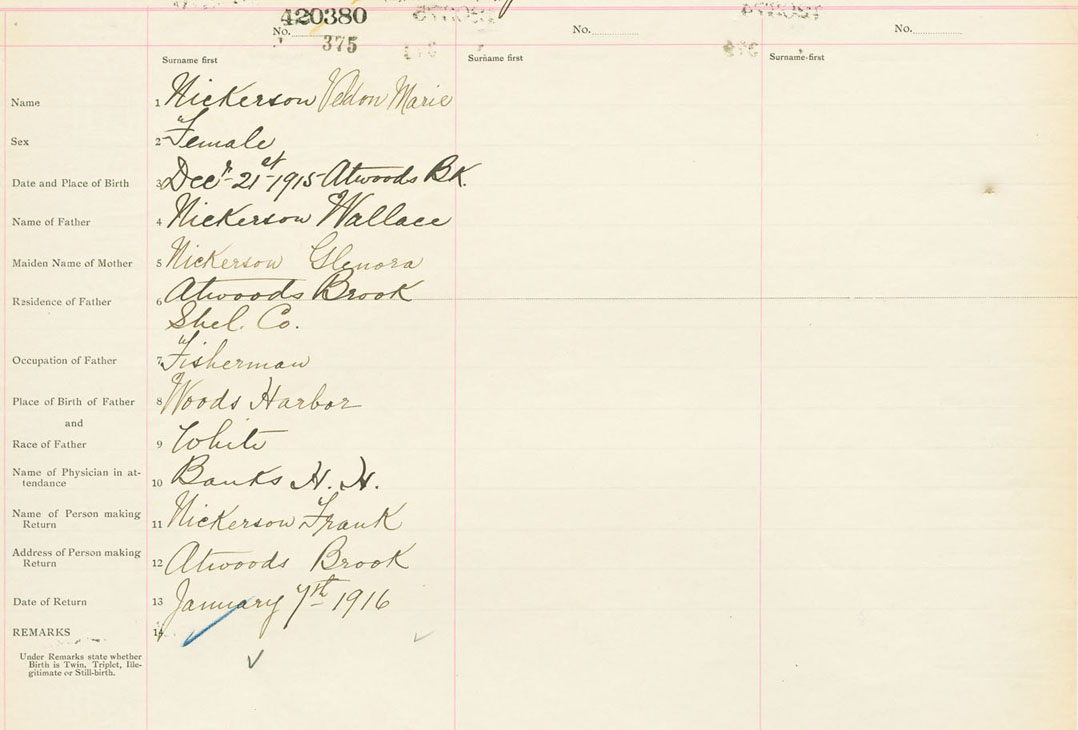 420380
No.
375
No.
No.
Surname first
Surname first
Surname first
Name 1 Nickerson Veldon Marie
Sex 2 Female
Date and Place of Birth 3 Decr 21st 1915 Atwoods BK.
Name of Father 4 Nickerson Wallace
Maiden Name of Mother 5 Nickerson Glenora
Residence of Father 6 Atwoods Brook
Shel. Co.
Occupation of Father 7 Fisherman
Place of Birth of Father 8 Woods Harbor
and
Race of Father 9 White
Name of Physician in at-
tendance 10 Banks H. H.
Name of Person making
Return 11 Nickerson Frank
Address of Person making
Return 12 Atwoods Brook
Date of Return 13 January 7th 1916
REMARKS 14
Under Remarks state whether
Birth is Twin, Triplet, Ille-
gitimate or Still-birth.